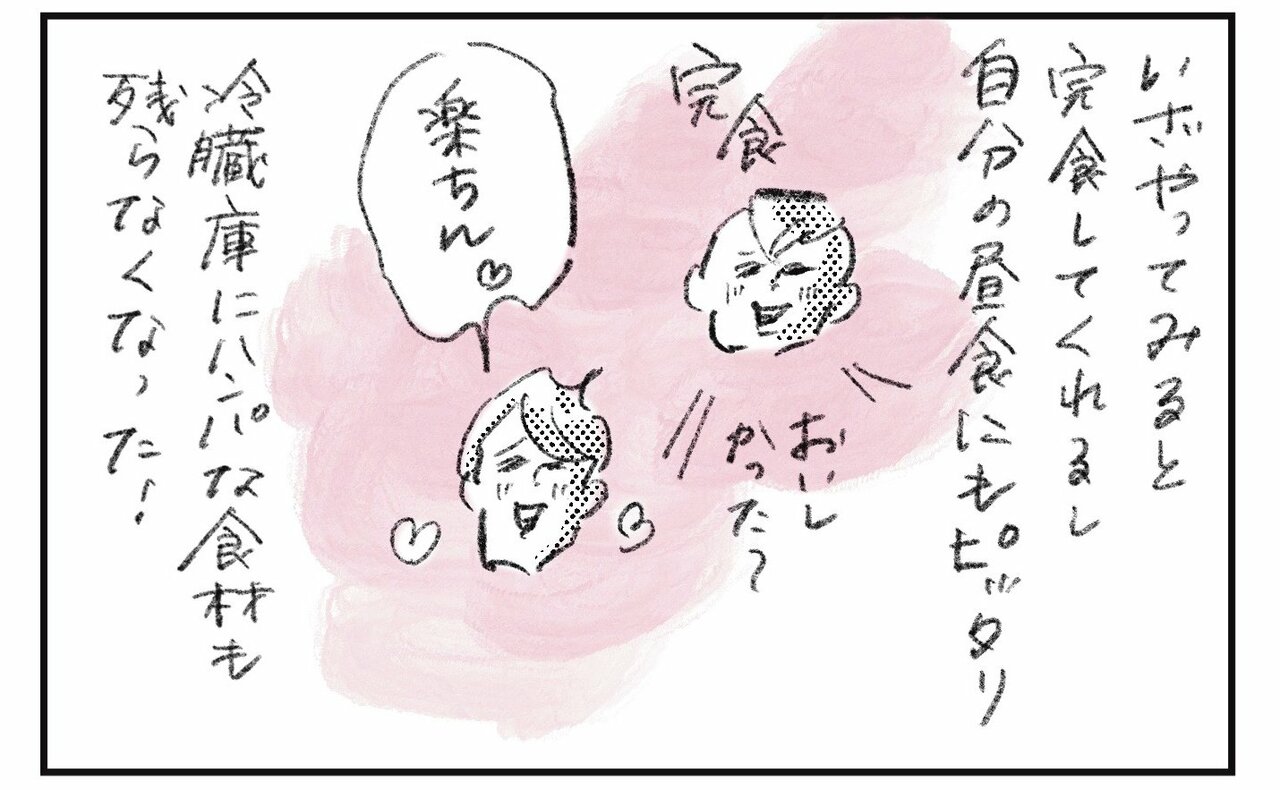 いざやってみると
完食してくれるし
自分の昼食にもピッタリ
完食
おいし
かった〜
楽ちん♡
冷蔵庫にハンパな食材も
残らなくなった!